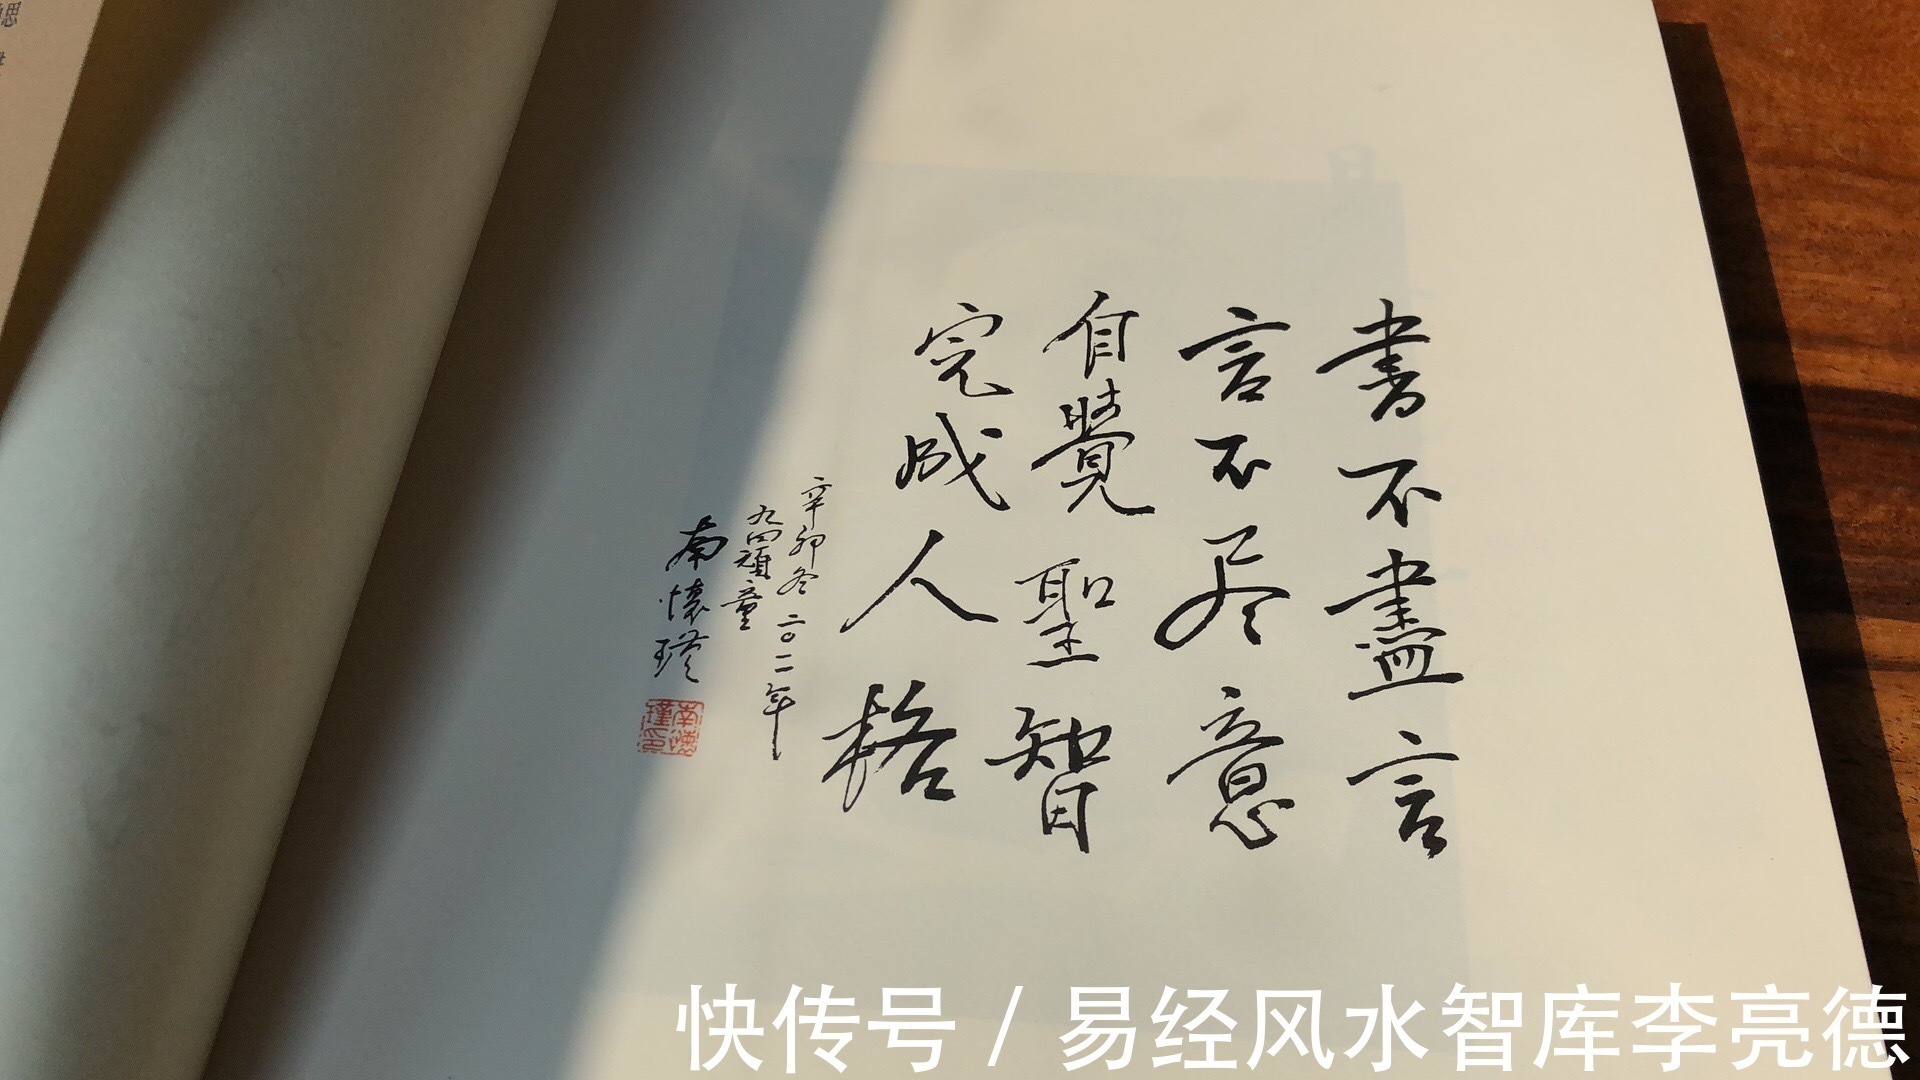 書不盡言
言不尽意
自覺聖智
完成人格
辛卯冬二〇一一年
九四頑童
南懷瑾
南懷瑾印
快传号／易经风水智库李亮德